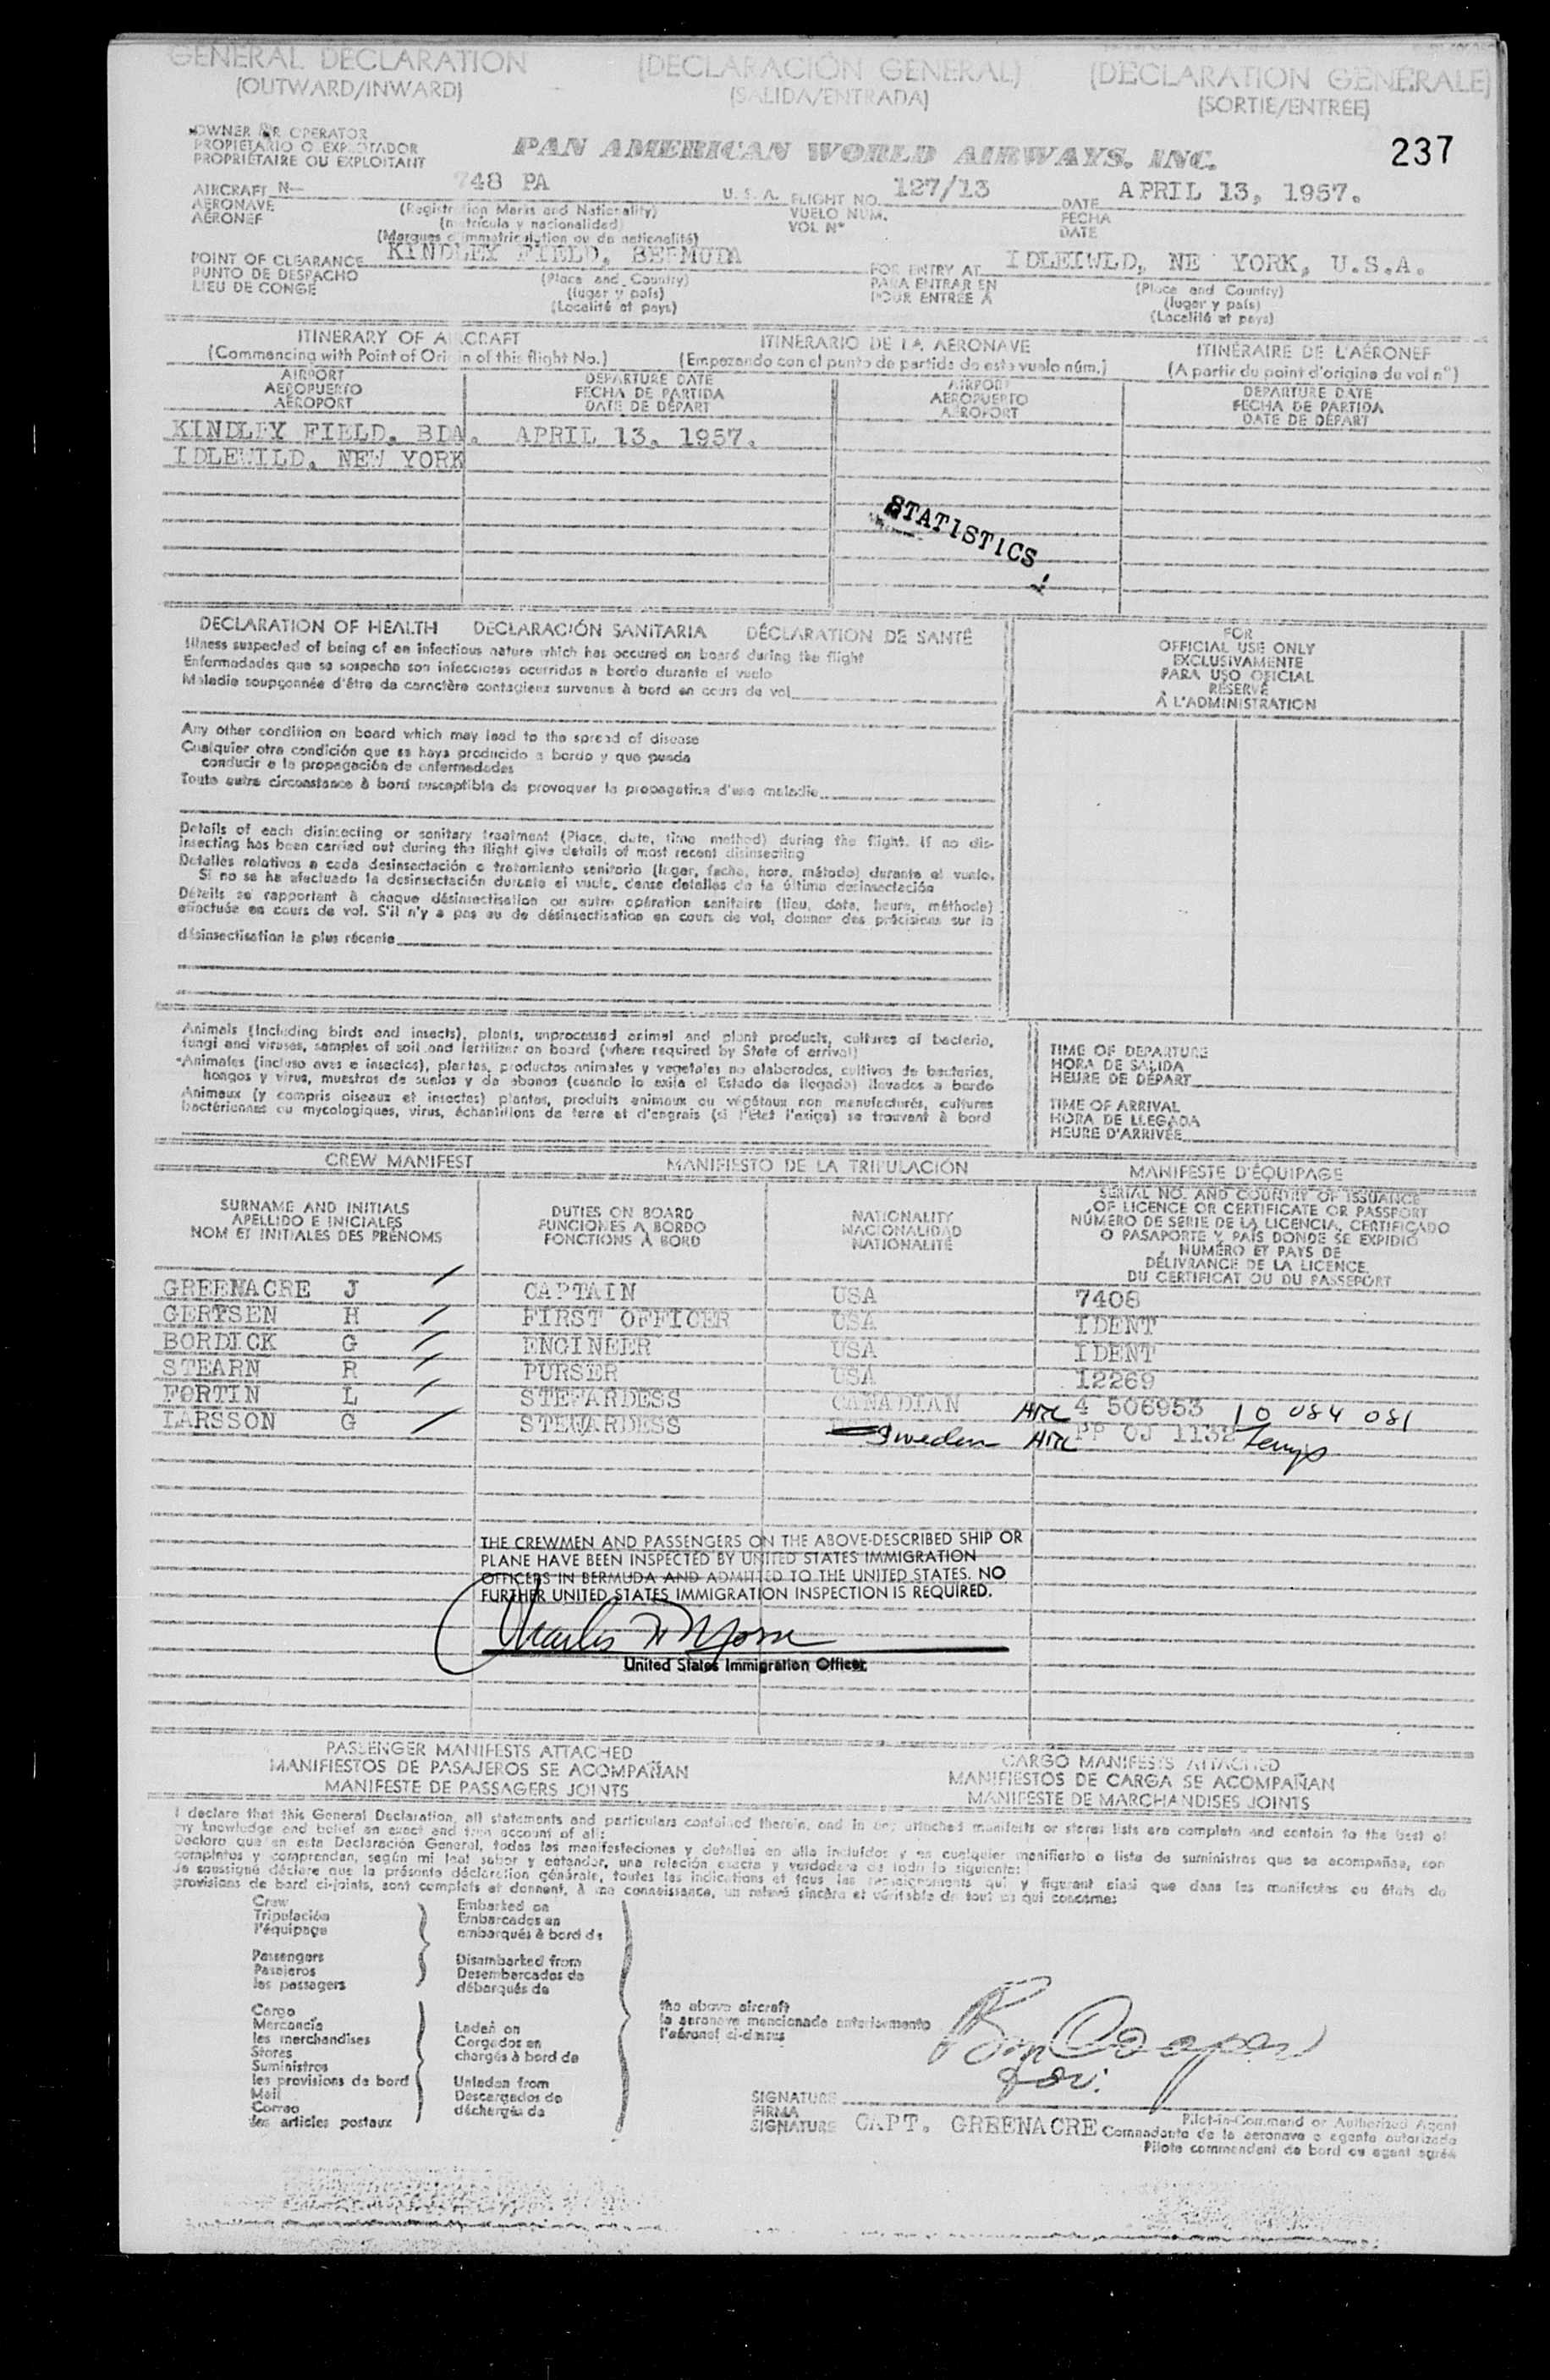 GENERAL DECLARATION (DECLARACIÓN GENERAL) (DECLARATION GENÉRALE)
(OUTWARD/INWARD) (SALIDA/ENTRADA) (SORTIE/ENTRÉE)
OWNER OR OPERATOR
PROPIETARIO O EXPLOTADOR
PROPRIÉTAIRE OU EXPLOITANT
PAN AMERICAN WORLD AIRWAYS, INC.
237
AIRCRAFT N- 748 PA U. S. A. FLIGHT NO. 127/13 DATE APRIL 13, 1957.
AERONAVE (Registration Marks and Nationality) VUELO NÚM. FECHA
AÉRONEF (matrícula y nacionalidad) VOL Nº DATE
(Marques d'immatriculation ou de nationalité)
POINT OF CLEARANCE KINDLEY FIELD, BERMUDA FOR ENTRY AT IDLEIWLD, NE YORK, U.S.A.
PUNTO DE DESPACHO (Place and Country) PARA ENTRAR EN (Place and Country)
LIEU DE CONGÉ (lugar y país) POUR ENTRÉE À (lugar y país)
(Localité et pays) (Localité et pays)
ITINERARY OF AIRCRAFT ITINERARIO DE LA AERONAVE ITINÉRAIRE DE L'AÉRONEF
(Commencing with Point of Origin of this flight No.) (Empezando con el punto de partida de este vuelo núm.) (A partir du point d'origine du vol nº)
AIRPORT DEPARTURE DATE AIRPORT DEPARTURE DATE
AEROPUERTO FECHA DE PARTIDA AEROPUERTO FECHA DE PARTIDA
AÉROPORT DATE DE DÉPART AÉROPORT DATE DE DÉPART
KINDLEY FIELD, BDA. APRIL 13, 1957.
IDLEWILD, NEW YORK
STATISTICS
DECLARATION OF HEALTH DECLARACIÓN SANITARIA DÉCLARATION DE SANTÉ
Illness suspected of being of an infectious nature which has occured on board during the flight
Enfermedades que se sospecha son infecciosas ocurridas a bordo durante el vuelo
Maladie soupçonnée d'être de caractère contagieux survenue à bord en cours de vol
FOR
OFFICIAL USE ONLY
EXCLUSIVAMENTE
PARA USO OFICIAL
RÉSERVÉ
À L'ADMINISTRATION
Any other condition on board which may lead to the spread of disease
Cualquier otra condición que se haya producido a bordo y que pueda
conducir a la propagación de enfermedades
Toute autre circonstance à bord susceptible de provoquer la propagation d'une maladie
Details of each disinsecting or sanitary treatment (Place, date, time method) during the flight. If no dis-
insecting has been carried out during the flight give details of most recent disinsecting
Detalles relativos a cada desinsectación o tratamiento sanitario (lugar, fecha, hora, método) durante el vuelo.
Si no se ha efectuado la desinsectación durante el vuelo, dense detalles de la última desinsectación
Détails se rapportant à chaque désinsectisation ou autre opération sanitaire (lieu, date, heure, méthode)
effectuée en cours de vol. S'il n'y a pas eu de désinsectisation en cours de vol, donner des précisions sur la
désinsectisation la plus récente
Animals (Including birds and insects), plants, unprocessed animal and plant products, cultures of bacteria,
fungi and viruses, samples of soil and fertilizer on board (where required by State of arrival)
Animales (incluso aves e insectos), plantas, productos animales y vegetales no elaborados, cultivos de bacterias,
hongos y virus, muestras de suelos y de abonos (cuando lo exija el Estado de llegada) llevados a bordo
Animaux (y compris oiseaux et insectes) plantes, produits animaux ou végétaux non manufacturés, cultures
bactériennes ou mycologiques, virus, échantillons de terre et d'engrais (si l'Etat l'exige) se trouvant à bord
TIME OF DEPARTURE
HORA DE SALIDA
HEURE DE DÉPART
TIME OF ARRIVAL
HORA DE LLEGADA
HEURE D'ARRIVÉE
CREW MANIFEST MANIFIESTO DE LA TRIPULACIÓN MANIFESTE D'ÉQUIPAGE
SURNAME AND INITIALS
APELLIDO E INICIALES
NOM ET INITIALES DES PRÉNOMS
DUTIES ON BOARD
FUNCIONES A BORDO
FONCTIONS À BORD
NATIONALITY
NACIONALIDAD
NATIONALITÉ
SERIAL NO. AND COUNTRY OF ISSUANCE
OF LICENCE OR CERTIFICATE OR PASSPORT
NÚMERO DE SERIE DE LA LICENCIA, CERTIFICADO
O PASAPORTE Y PAÍS DONDE SE EXPIDIÓ
NUMÉRO ET PAYS DE
DÉLIVRANCE DE LA LICENCE,
DU CERTIFICAT OU DU PASSEPORT
GREENACRE J CAPTAIN USA 7408
GERTSEN H FIRST OFFICER USA IDENT
BORDICK G ENGINEER USA IDENT
STEARN R PURSER USA 12269
FORTIN L STEWARDESS CANADIAN 4 506953 10 084 081
LARSSON G STEWARDESS Sweden PP OJ 1132 Temp
THE CREWMEN AND PASSENGERS ON THE ABOVE-DESCRIBED SHIP OR
PLANE HAVE BEEN INSPECTED BY UNITED STATES IMMIGRATION
OFFICERS IN BERMUDA AND ADMITTED TO THE UNITED STATES. NO
FURTHER UNITED STATES IMMIGRATION INSPECTION IS REQUIRED.
United States Immigration Officer
PASSENGER MANIFESTS ATTACHED CARGO MANIFESTS ATTACHED
MANIFIESTOS DE PASAJEROS SE ACOMPAÑAN MANIFIESTOS DE CARGA SE ACOMPAÑAN
MANIFESTE DE PASSAGERS JOINTS MANIFESTE DE MARCHANDISES JOINTS
I declare that this General Declaration, all statements and particulars contained therein, and in any attached manifests or stores lists are complete and contain to the best of
my knowledge and belief an exact and true account of all:
Declaro que en esta Declaración General, todas las manifestaciones y detalles en ella incluídos y en cualquier manifiesto o lista de suministros que se acompañe, son
completos y comprenden, según mi leal saber y entender, una relación exacta y verdadera de todo lo siguiente:
Je soussigné déclare que la présente déclaration générale, toutes les indications et tous les renseignements qui y figurent ainsi que dans les manifestes ou états de
provisions de bord ci-joints, sont complets et donnent, à ma connaissance, un relevé sincère et véritable de tout ce qui concerne:
Crew
Tripulación
l'équipage
Passengers
Pasajeros
les passagers
Embarked on
Embarcados en
embarqués à bord de
Disembarked from
Desembarcados de
débarqués de
Cargo
Mercancía
les merchandises
Stores
Suministros
les provisions de bord
Mail
Correo
les articles postaux
Laden on
Cargados en
chargés à bord de
Unladen from
Descargados de
déchargés de
the above aircraft
la aeronave mencionada anteriormente
l'aéronef ci-dessus
for:
SIGNATURE
FIRMA
SIGNATURE CAPT. GREENACRE
Pilot-in-Command or Authorized Agent
Comandante de la aeronave o agente autorizado
Pilote commandant de bord ou agent agréé